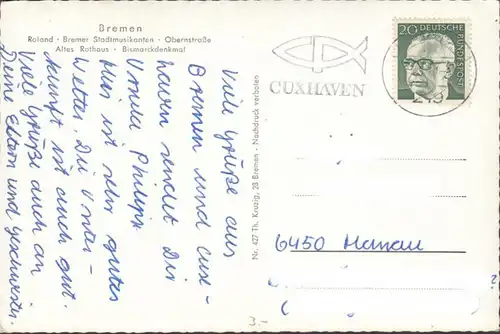 Bremen
Roland · Bremer Stadtmusikanten · Obernstraße
Altes Rathaus · Bismarckdenkmal
Viele Grüße aus
Bremen und Cux-
haven sendet Dir
Ursula Philipp
Hier ist sehr gutes
Wetter. Die Unter-
kunft ist auch gut.
Viele Grüße auch an
Deine Eltern und Geschwister.
Nr. 427 Th. Kruzig, 28 Bremen - Nachdruck verboten
CUXHAVEN
20 DEUTSCHE BUNDESPOST
6450 Hanau
3.-